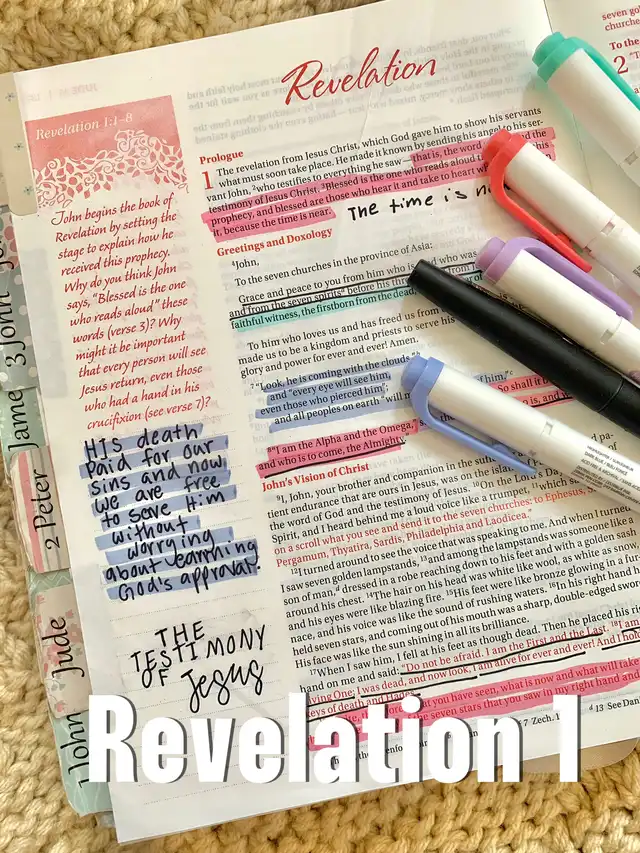 Revelation
Revelation 1:1–8
John begins the book of
Revelation by setting the
stage to explain how he
received this prophecy.
Why do you think John
says, "Blessed is the one
who reads aloud" these
words (verse 3)? Why
might it be important
that every person will see
Jesus return, even those
who had a hand in his
crucifixion (see verse 7)?
HIS death
paid for our
sins and now
we are free
to serve Him
without
worrying
about earning
God's approval.
THE
TESTIMONY
OF Jesus
Prologue
1 The revelation from Jesus Christ, which God gave him to show his servants
what must soon take place. He made it known by sending his angel to his ser-
vant John, ²who testifies to everything he saw—that is, the word and the
testimony of Jesus Christ. ³Blessed is the one who reads aloud this
prophecy, and blessed are those who hear it and take to heart
it, because the time is near.
The time is
Greetings and Doxology
⁴John,
To the seven churches in the province of Asia:
Grace and peace to you from him who is, and who was
and from the seven spirits before his
faithful witness, the firstborn from the dead,
To him who loves us and has freed us from
made us to be a kingdom and priests to serve his
glory and power for ever and ever! Amen.
⁷"Look, he is coming with the clouds,"
and "every eye will see him,
even those who pierced him";
and all peoples on earth" will him."
So shall it
⁸"I am the Alpha and the Omega,"
is, and
and who is to come, the Almighty."
John's Vision of Christ
⁹I, John, your brother and companion in the
tient endurance that are ours in Jesus, was on the
the word of God and the testimony of Jesus. ¹⁰On the Lord's Day
Spirit, and I heard behind me a loud voice like a trumpet, which
on a scroll what you see and send it to the seven churches: to Ephesus,
Pergamum, Thyatira, Sardis, Philadelphia and Laodicea."
¹²I turned around to see the voice that was speaking to me. And when I turned
I saw seven golden lampstands, ¹³and among the lampstands was someone like a
son of man, dressed in a robe reaching down to his feet and with a golden sash
around his chest. ¹⁴The hair on his head was white like wool, as white as snow,
and his eyes were like blazing fire. ¹⁵His feet were like bronze glowing in a
nace, and his voice was like the sound of rushing waters. ¹⁶In his right hand
held seven stars, and coming out of his mouth was a sharp, double-edged
His face was like the sun shining in all its brilliance.
¹⁷When I saw him, I fell at his feet as though dead. Then he placed his
hand on me and said: "Do not be afraid. I am the First and the Last. ¹⁸I am
Living One; I was dead, and now look, I am alive for ever and ever! And I
keys of death and Hades.
you have seen, what is now and what will take
the seven stars that you saw in my right hand and
7 Zech.
13 See
3 John
Jame
2 Peter
Jude
1 John
Revelation 1